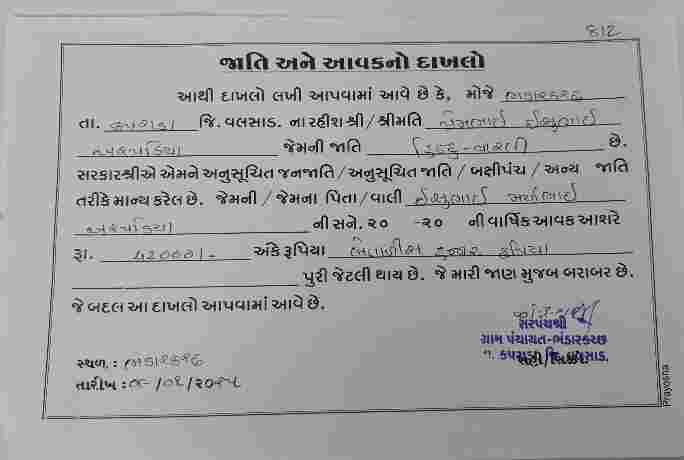 812
જાતિ અને આવકનો દાખલો
આથી દાખલો લખી આપવામાં આવે છે કે, મોજે ભંડારકચ્છ
તા. કપરાડા જિ. વલસાડ. ના રહીશ શ્રી / શ્રીમતિ
જેમની જાતિ હિન્દુ-વારલી છે.
સરકારશ્રીએ એમને અનુસૂચિત જનજાતિ / અનુસૂચિત જાતિ / બક્ષીપંચ / અન્ય જાતિ
તરીકે માન્ય કરેલ છે. જેમની / જેમના પિતા / વાલી
ની સને. ૨૦ -૨૦ ની વાર્ષિક આવક આશરે
રૂા. 42000/- અંકે રૂપિયા બેતાળીસ હજાર રૂપિયા
પુરી જેટલી થાય છે. જે મારી જાણ મુજબ બરાબર છે.
જે બદલ આ દાખલો આપવામાં આવે છે.
સરપંચશ્રી
ગ્રામ પંચાયત-ભંડારકચ્છ
તા. કપરાડા જિ. વલસાડ.
સહી/સિક્કો
સ્થળ. : ભંડારકચ્છ
તારીખ :
Prayosha